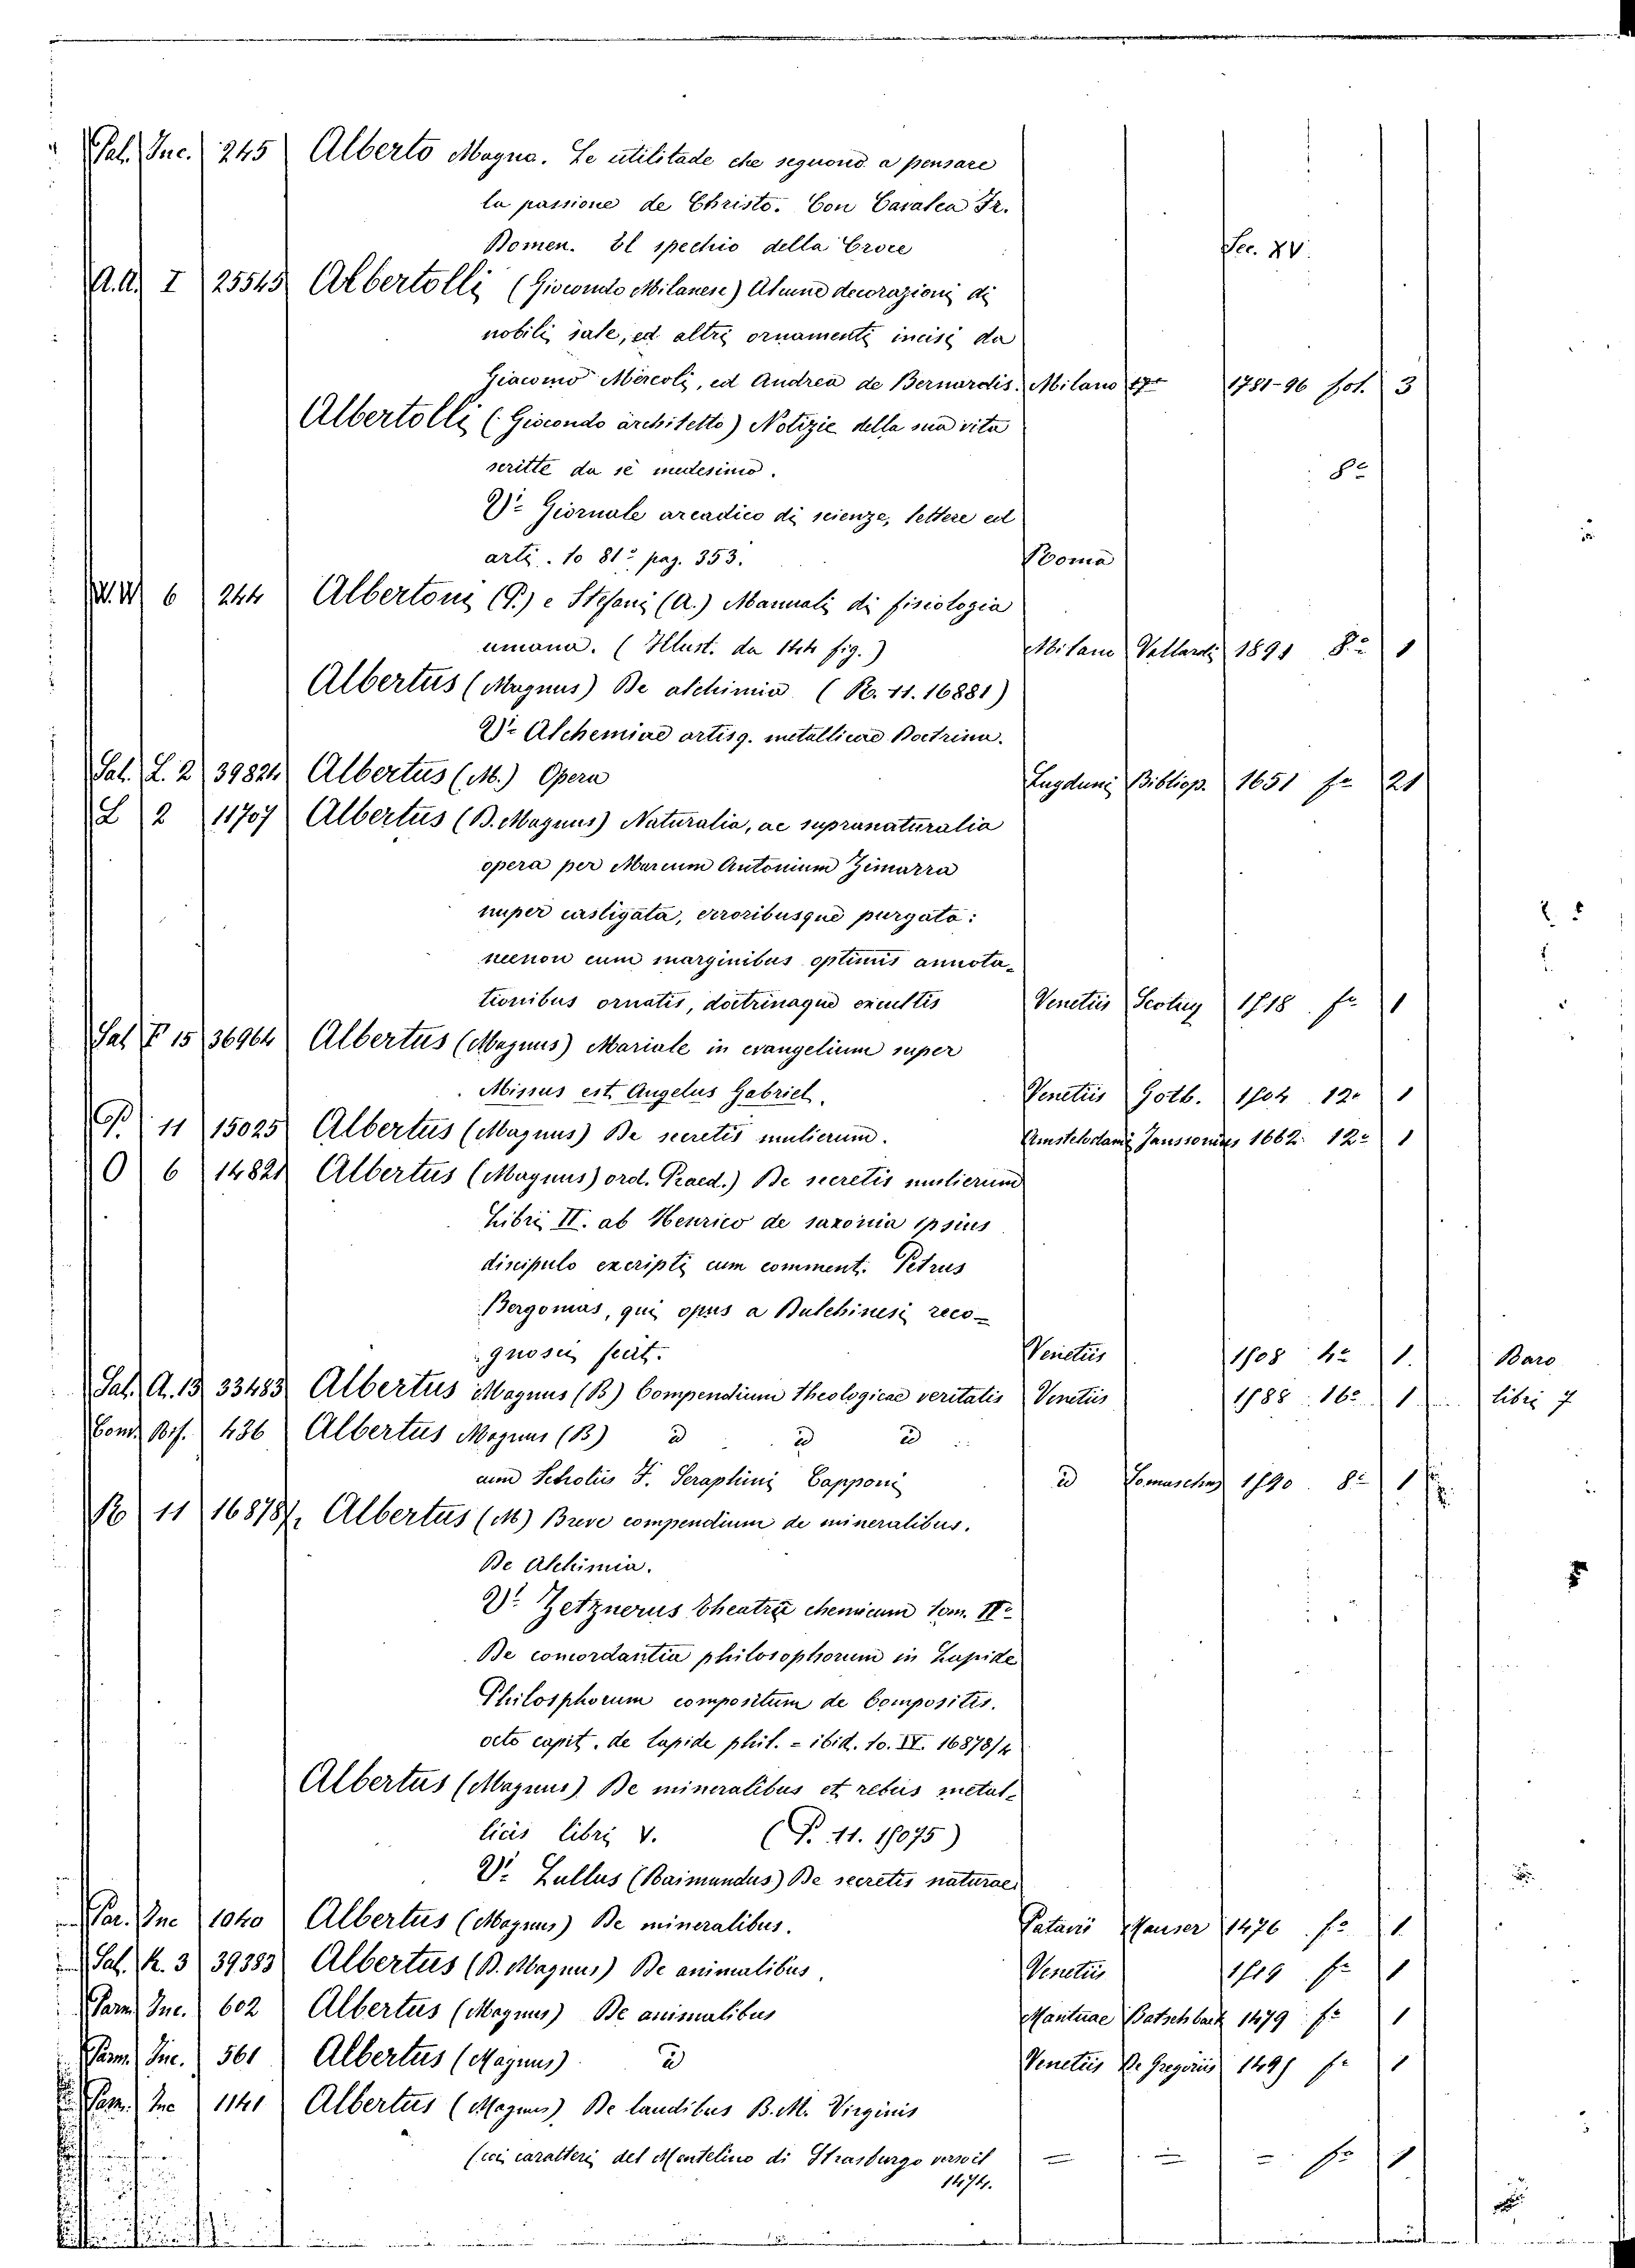 Pal. Inc. 245 Alberto Magno. Le utilitade che seguono a pensare
la passione de Christo. Con Cavalca Fr.
Domen. El spechio della Croce Sec. XV.
A.A. I 25545 Albertolli (Giocondo Milanese) Alcune decorazioni di
nobili sale, ed altri ornamenti incisi da
Giacomo Mercoli, ed Andrea de Bernardis. Milano 1781-96 fol. 3
Albertolli (Giocondo architetto) Notizie della sua vita
scritte da sè medesimo. 8º
Vi Giornale arcadico di scienze, lettere ed
arti. to 81º pag. 353. Roma
W.W 6 244 Albertoni (P.) e Stefani (A.) Manuali di fisiologia
umana. (Illust. da 144 fig.) Milano Vallardi 1891 8º 1
Albertus (Magnus) De alchimia (R. 11. 16881)
Vi Alchemiae artisq. metallicae Doctrina.
Sal. L. 2 39824 Albertus (M.) Opera Lugduni Bibliop. 1651 fº 21
L 2 11707 Albertus (B. Magnus) Naturalia, ac supranaturalia
opera per Marcum Antonium Zimarra
nuper castigata, erroribusque purgata:
necnon cum marginibus optimis annota-
tionibus ornatis, doctrinaque excultis Venetiis Scotus 1518 fº 1
Sal F 15 36964 Albertus (Magnus) Mariale in evangelium super
Missus est Angelus Gabriel. Venetiis Gotb. 1504 12º 1
P. 11 15025 Albertus (Magnus) De secretis mulierum. Amstelodami Janssonius 1662 12º 1
O 6 14821 Albertus (Magnus) ord. Praed.) De secretis mulierum
Libri II. ab Henrico de saxonia ipsius
discipulo excripti cum comment. Petrus
Bergomas, qui opus a Bulchinesi reco-
gnosci fecit. Venetiis 1508 4º 1. Baro
Sal. A. 13 33483 Albertus Magnus (B) Compendium Theologicae veritatis Venetiis 1588 16º 1 libri 7
Cond. Bif. 436 Albertus Magnus (B) id id id
cum Scholiis F. Seraphini Capponi id Somaschus 1590 8º 1
R 11 16878/2 Albertus (M) Breve compendium de mineralibus.
De Alchimia.
Vi Zetznerus Theatru chemicum tom. IIº
De concordantia philosophorum in Lapide
Philosphorum compositum de Compositis.
octo capit. de lapide phil. = ibid. to. IV. 16878/4
Albertus (Magnus) De mineralibus et rebus metal-
licis libri V. (P. 11. 15075)
Vi Lullus (Raimundus) De secretis naturae
Par. Inc 1040 Albertus (Magnus) De mineralibus. Patavii Mauser 1476 fº 1
Sal. K. 3 39383 Albertus (B. Magnus) De animalibus. Venetiis 1519 fº 1
Parm Inc. 602 Albertus (Magnus) De animalibus Mantuae Batschback 1479 fº 1
Parm. Inc. 561 Albertus (Magnus) id Venetiis De Gregoriis 1495 fº 1
Parm. Inc 1141 Albertus (Magnus) De laudibus B. M. Virginis
(coi caratteri del Mentelino di Strasburgo verso il = = = fº 1
1474.